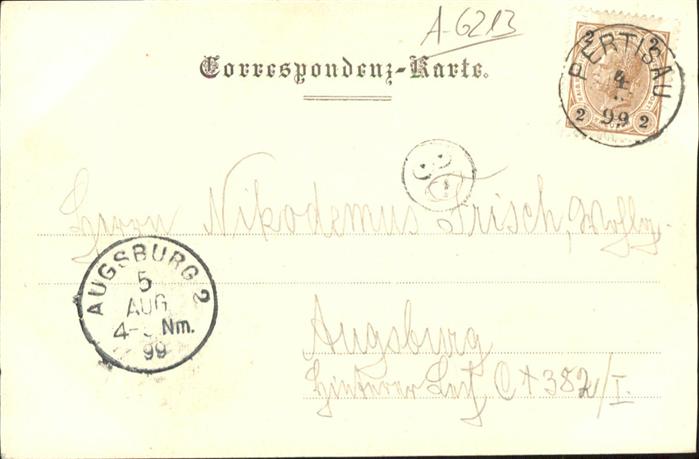 A-6213
Correspondenz-Karte.
2 2
PERTISAU
4
99
2 2
Herrn Nikodemus Frisch,
AUGSBURG 2
5
AUG
4- Nm.
99
Augsburg
Hinterer C+382/I.